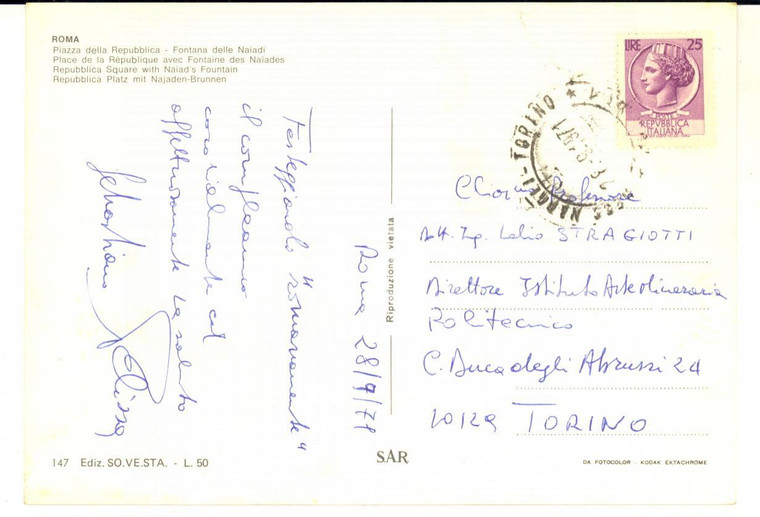 ROMA
Piazza della Repubblica - Fontana delle Naiadi
Place de la Rèpublique avec Fontaine des Naïades
Repubblica Square with Naiad's Fountain
Repubblica Platz mit Najaden-Brunnen
Festeggiando "romanamente"
il compleanno
cordialmente ed
affettuosamente La saluto
Sebastiano
Roma 28/9/71
Riproduzione vietata
LIRE 25
POSTE
REPVBBLICA
ITALIANA
NAPOLI-TORINO
Chiar.mo Professore
Dott. Ing. Lelio STRAGIOTTI
Direttore Istituto Arte Mineraria
Politecnico
C. Duca degli Abruzzi 24
10129 TORINO
147 Ediz. SO.VE.STA. - L. 50
SAR
DA FOTOCOLOR - KODAK EKTACHROME